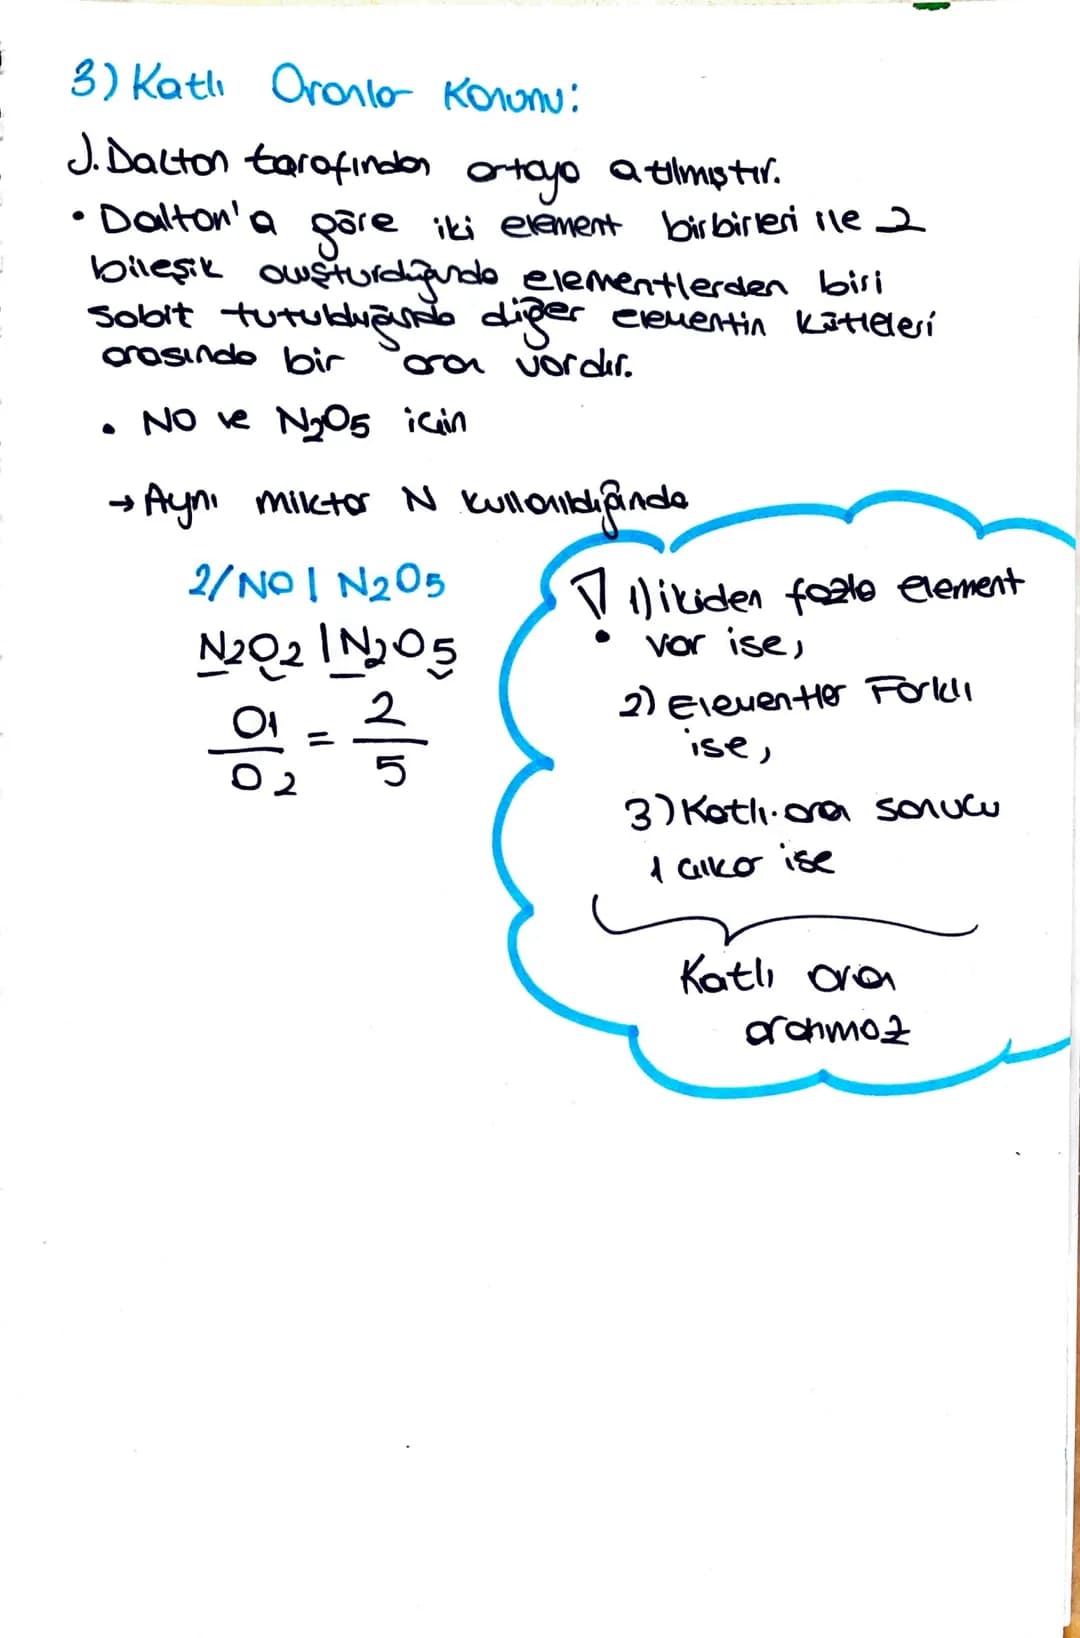 3) Katlı Oranlar Kanunu:
J. Dalton tarafından ortaya atılmıştır.
• Dalton'a göre iki element birbirleri ile 2
bileşik oluşturduğunda elementlerden biri
sabit tutulduğunda diğer elementin kütleleri
arasında bir oran vardır.
• NO ve N2O5 için
→ Aynı miktar N kullanıldığında
2/ NO | N2O5
N2O2 | N2O5
O1 / O2 = 2 / 5
! 1) ikiden fazla element
var ise,
2) Elementler Farklı
ise,
3) Katlı oran sonucu
1 çıkar ise
Katlı oran
aranmaz